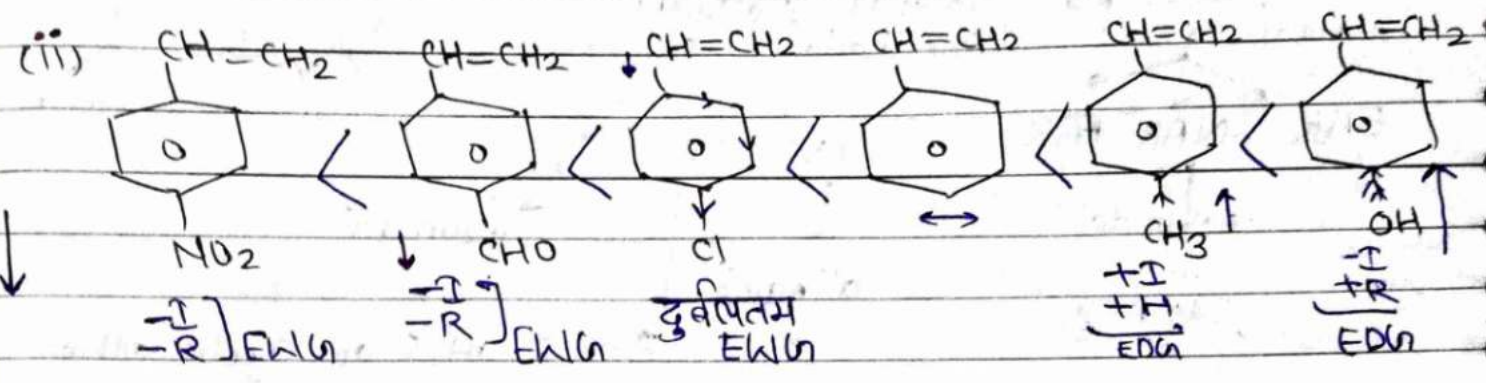 (ii) CH=CH2 CH=CH2 ↓ CH=CH2 CH=CH2 CH=CH2 CH=CH2
< < < < <
NO2 ↓ CHO Cl ↔ CH3 ↑ OH
-I -I +I -I
-R ] EWG -R ] EWG दुर्बलतम EWG +H EDG +R EDG